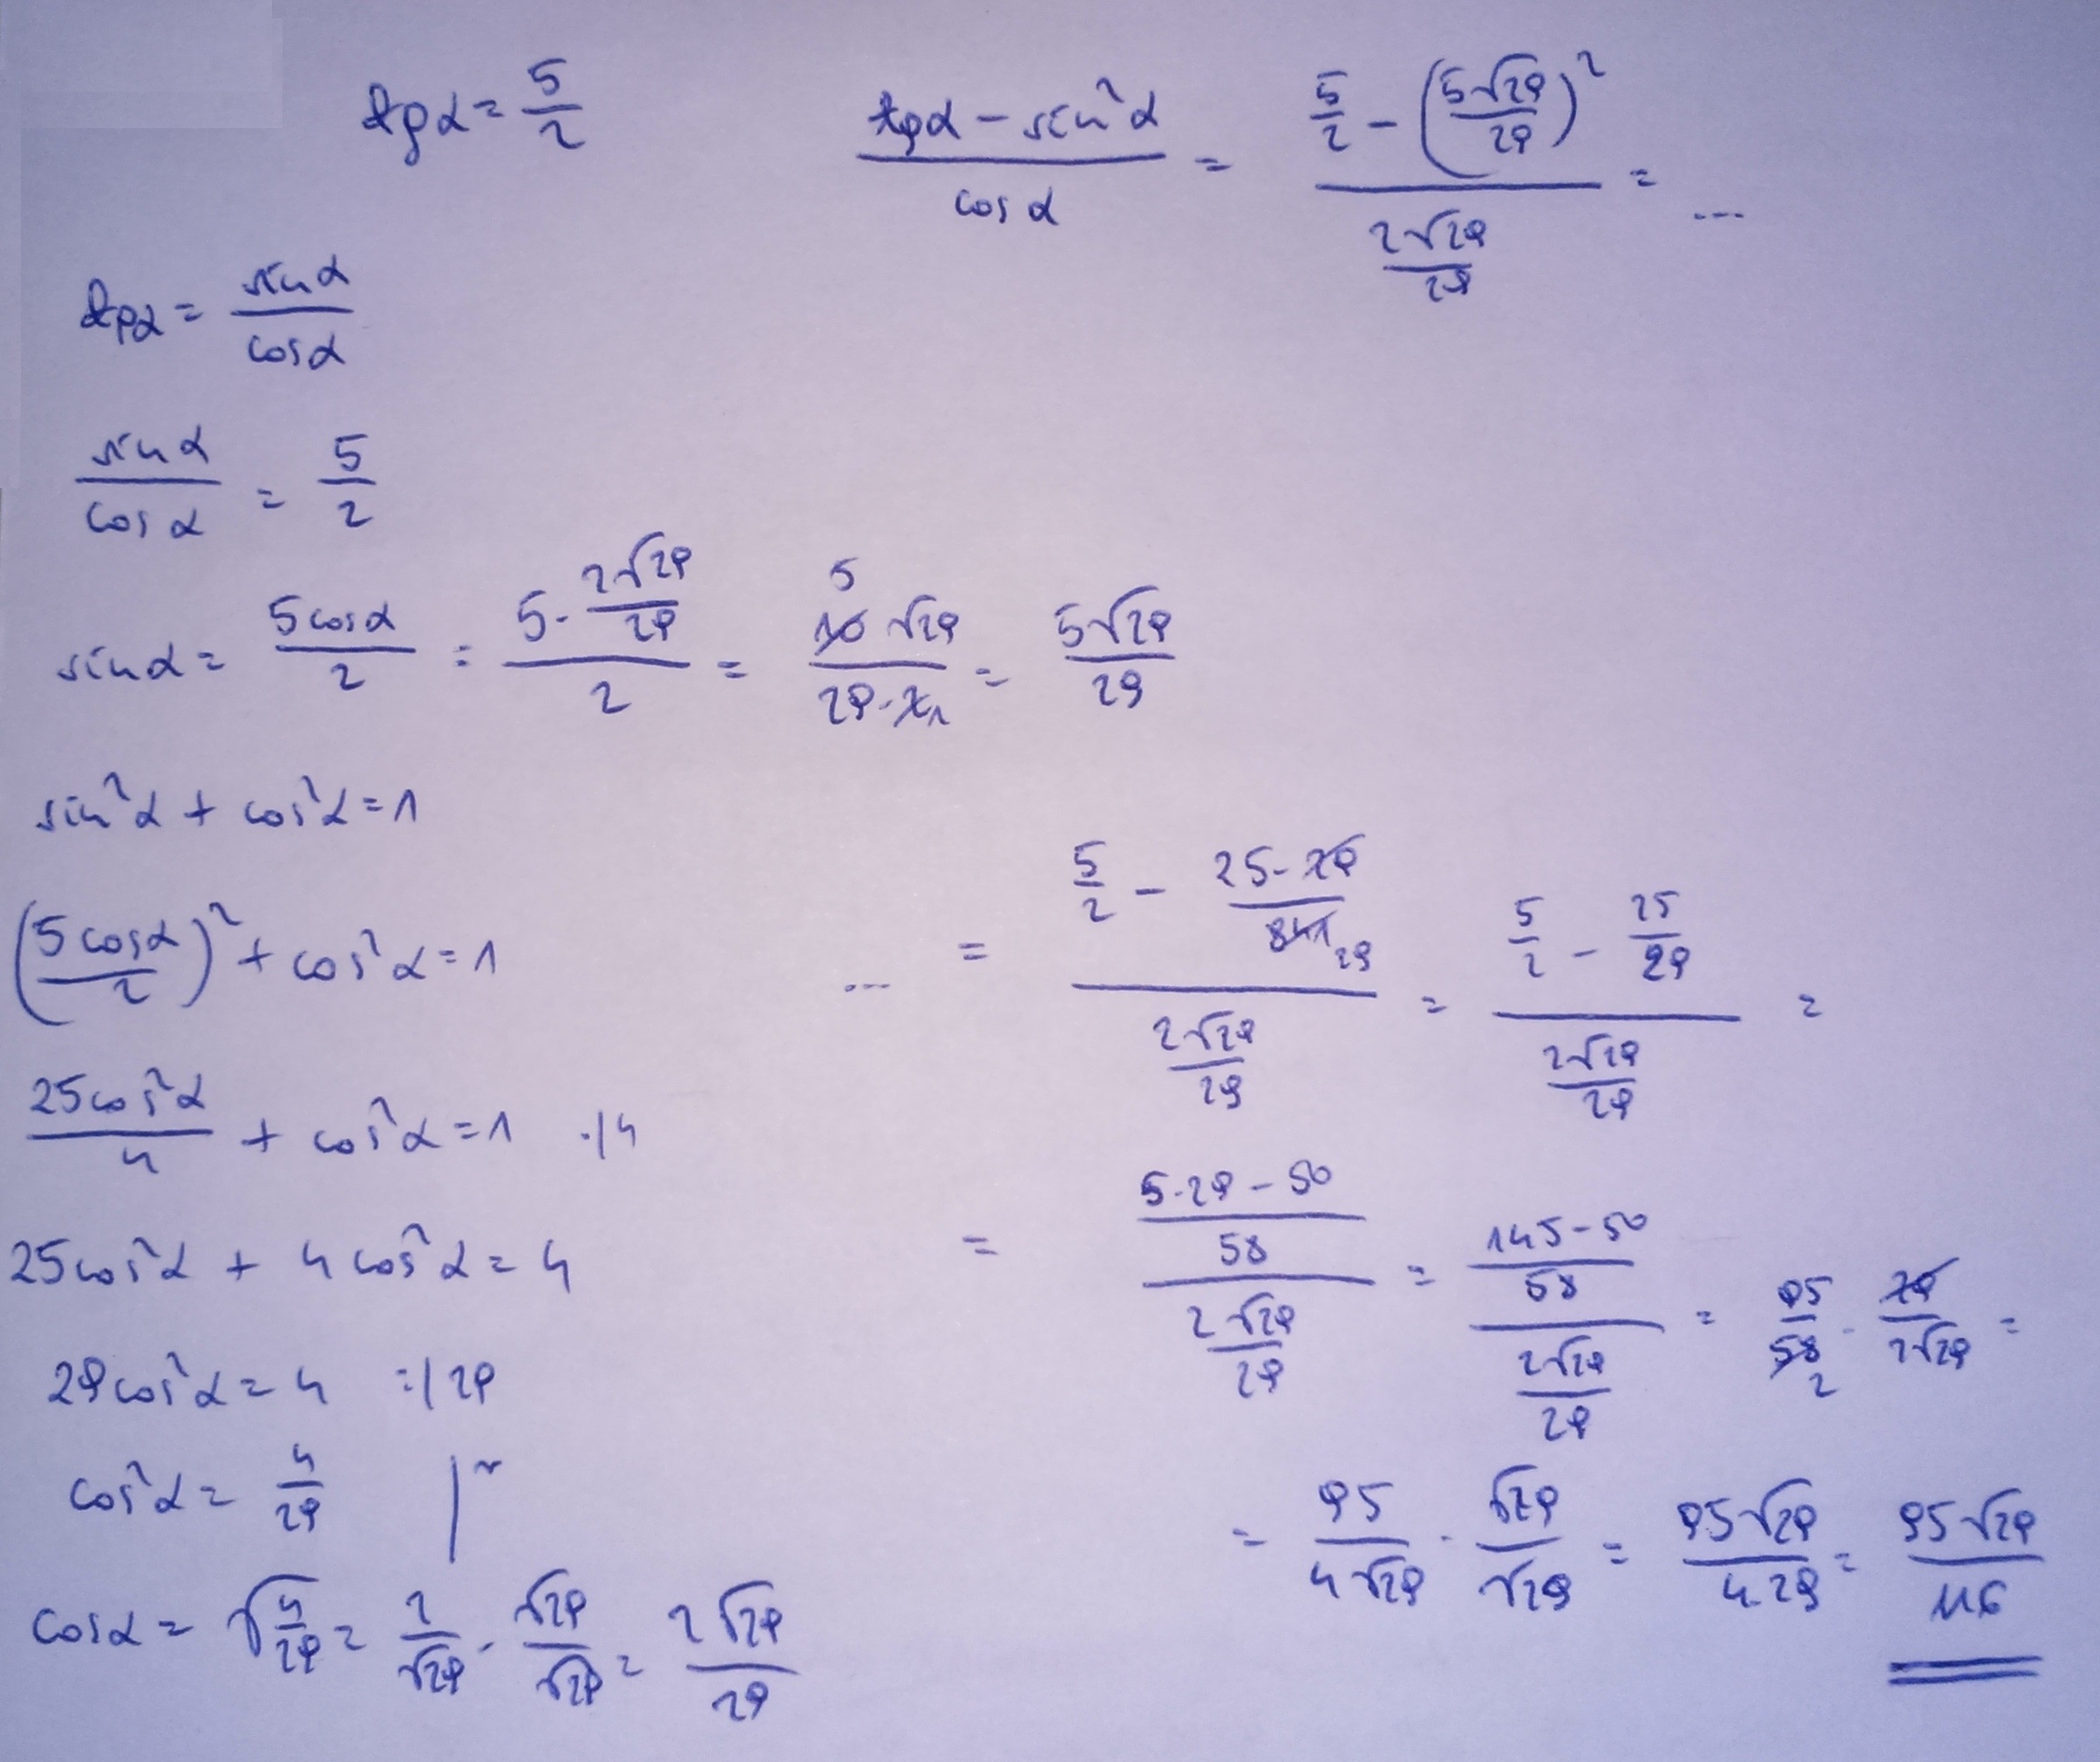 tgα = 5/2
(tgα - sin²α)/cosα = (5/2 - (5√29/29)²)/(2√29/29) = ...
tgα = sinα/cosα
sinα/cosα = 5/2
sinα = 5cosα/2 = (5·2√29/29)/2 = 10√29/(29·2) 5 1 = 5√29/29
sin²α + cos²α = 1
(5cosα/2)² + cos²α = 1
25cos²α/4 + cos²α = 1 ·/4
25cos²α + 4cos²α = 4
29cos²α = 4 :/29
cos²α = 4/29 |√
cosα = √(4/29) = 2/√29 · √29/√29 = 2√29/29
... = (5/2 - 25·29/841 29)/(2√29/29) = (5/2 - 25/29)/(2√29/29) =
= ((5·29-50)/58)/(2√29/29) = ((145-50)/58)/(2√29/29) = 95/58 2 · 29/2√29 =
= 95/4√29 · √29/√29 = 95√29/4·29 = 95√29/116